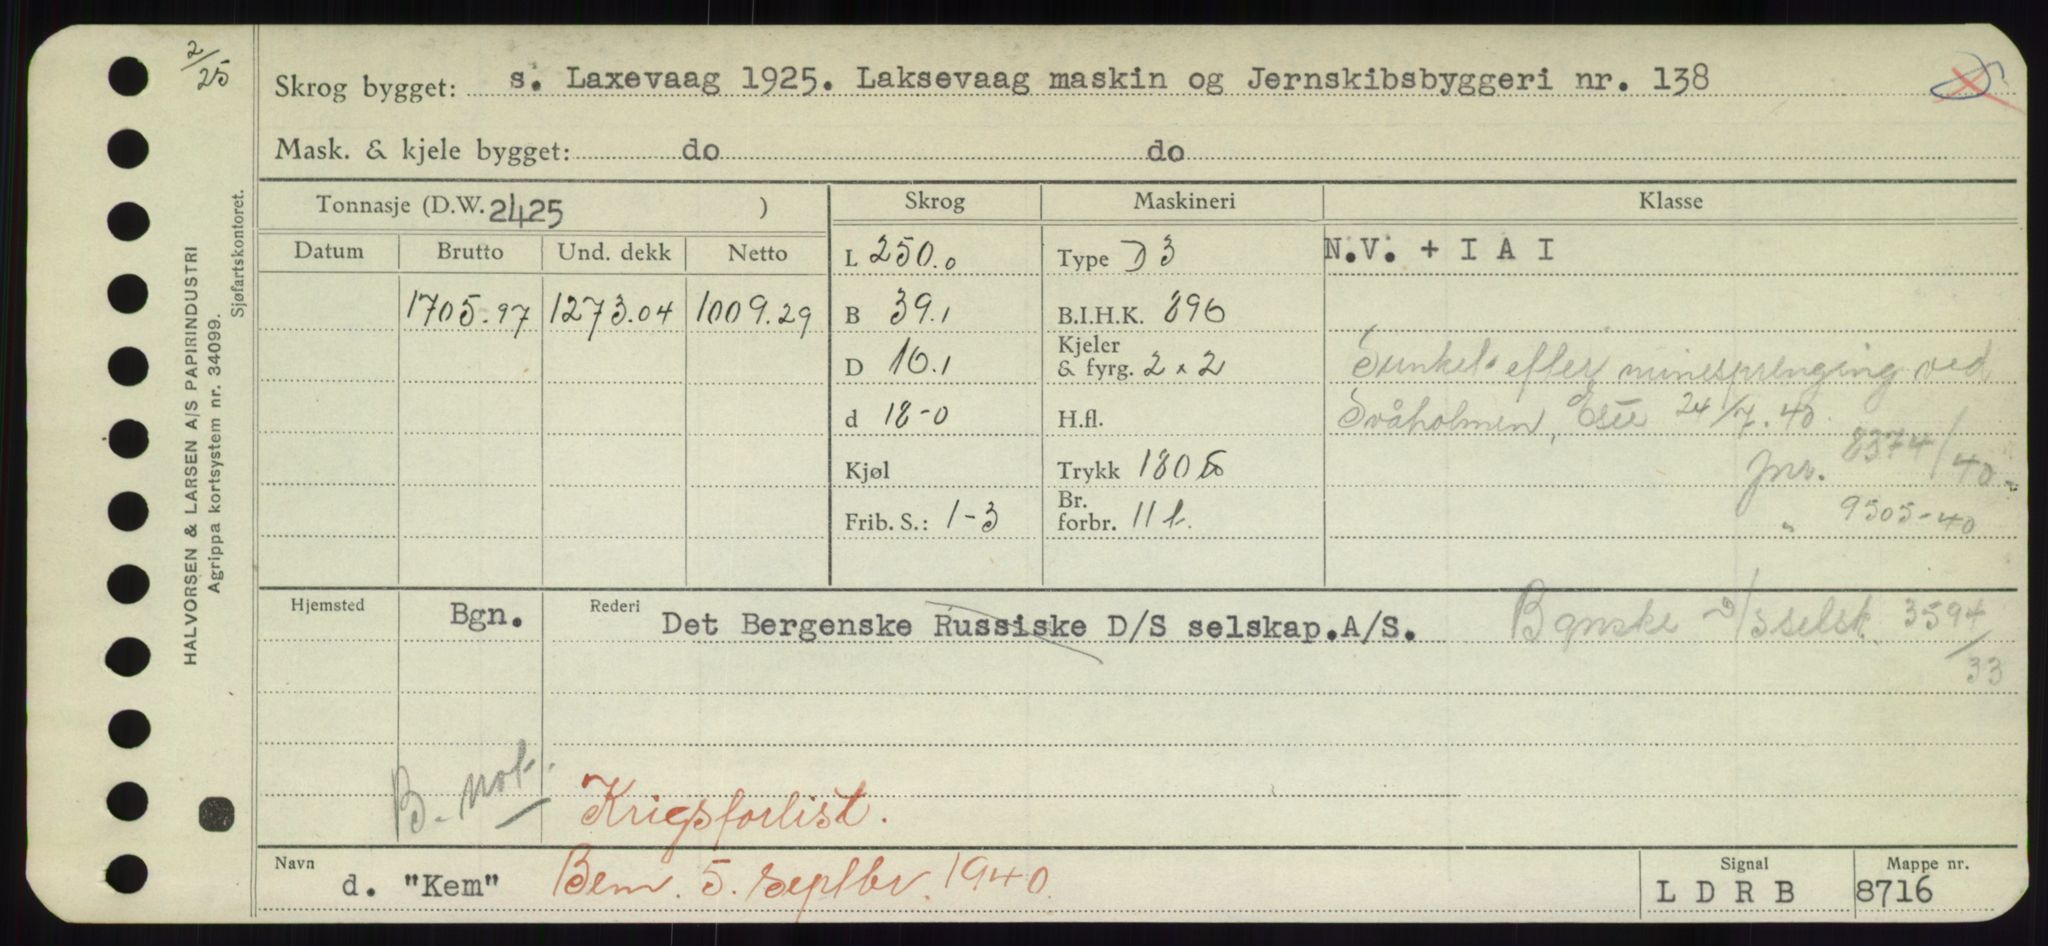 2/25
Skrog bygget: s. Laxevaag 1925. Laksevaag maskin og Jernskibsbyggeri nr. 138
Mask. & kjele bygget: do do
Tonnasje (D.W. 2425 )
Skrog
Maskineri
Klasse
Datum
Brutto
Und. dekk
Netto
L 250.0
Type D 3
N.V. + I A I
1705.97
1273.04
1009.29
B 39.1
B.I.H.K. 896
D 16.1
Kjeler
& fyrg. 2 x 2
Sunket efter minesprenging ved
d 18-0
H.fl.
Svåholmen, 24/7.40
Kjøl
Trykk 180
jnr. 8374/40
Frib. S.: 1-3
Br.
forbr. 11 t.
" 9505-40
Hjemsted
Bgn.
Rederi
Det Bergenske Russiske D/S selskap.A/S.
Bgnske D/Sselsk. 3594/33
B. not.
Krigsforlist.
Navn
d. "Kem"
Bem. 5. septbr. 1940.
Signal
L D R B
Mappe nr.
8716
HALVORSEN & LARSEN A/S PAPIRINDUSTRI
Agrippa kortsystem nr. 34099.
Sjøfartskontoret.